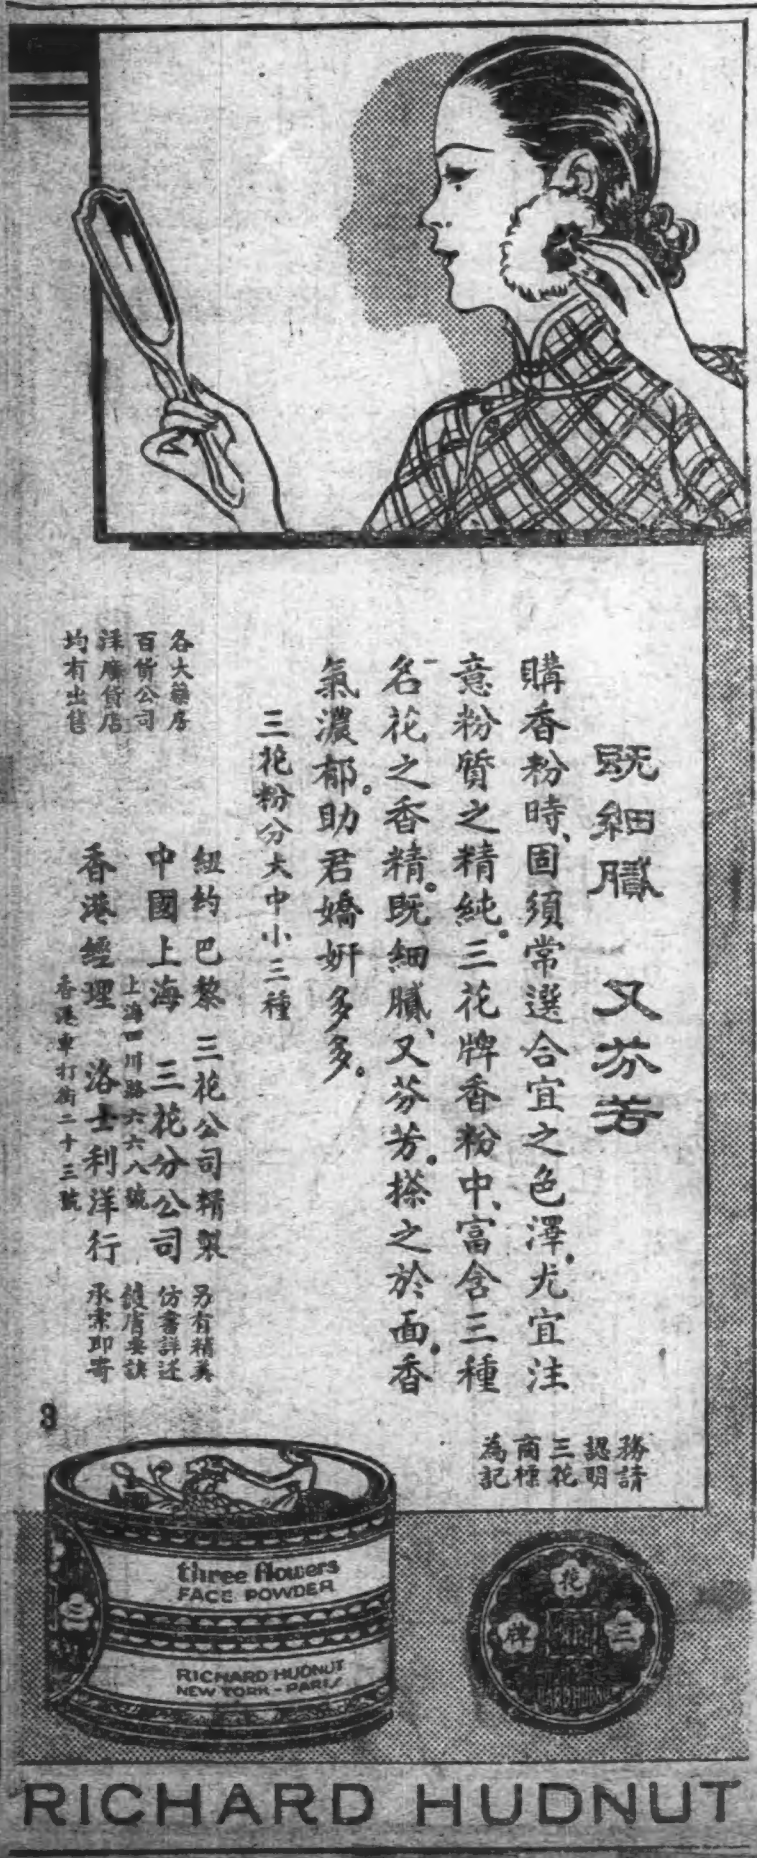 既細膩 又芬芳
購香粉時、固須常選合宜之色澤。尤宜注
意粉質之精純。三花牌香粉中、富含三種
名花之香精。既細膩、又芬芳。搽之於面。香
氣濃郁。助君嬌妍多多。
三花粉分大中小三種
紐約巴黎 三花公司精製
中國上海 三花分公司
上海四川路六六八號
香港經理 洛士利洋行
香港車打街二十三號
各大藥房
百貨公司
洋廣貨店
均有出售
另有精美
仿書詳述
承索即寄
務請
認明
三花
商標
為記
3
three flowers
FACE POWDER
RICHARD HUDNUT
NEW YORK - PARIS
三
花
牌
三
RICHARD HUDNUT